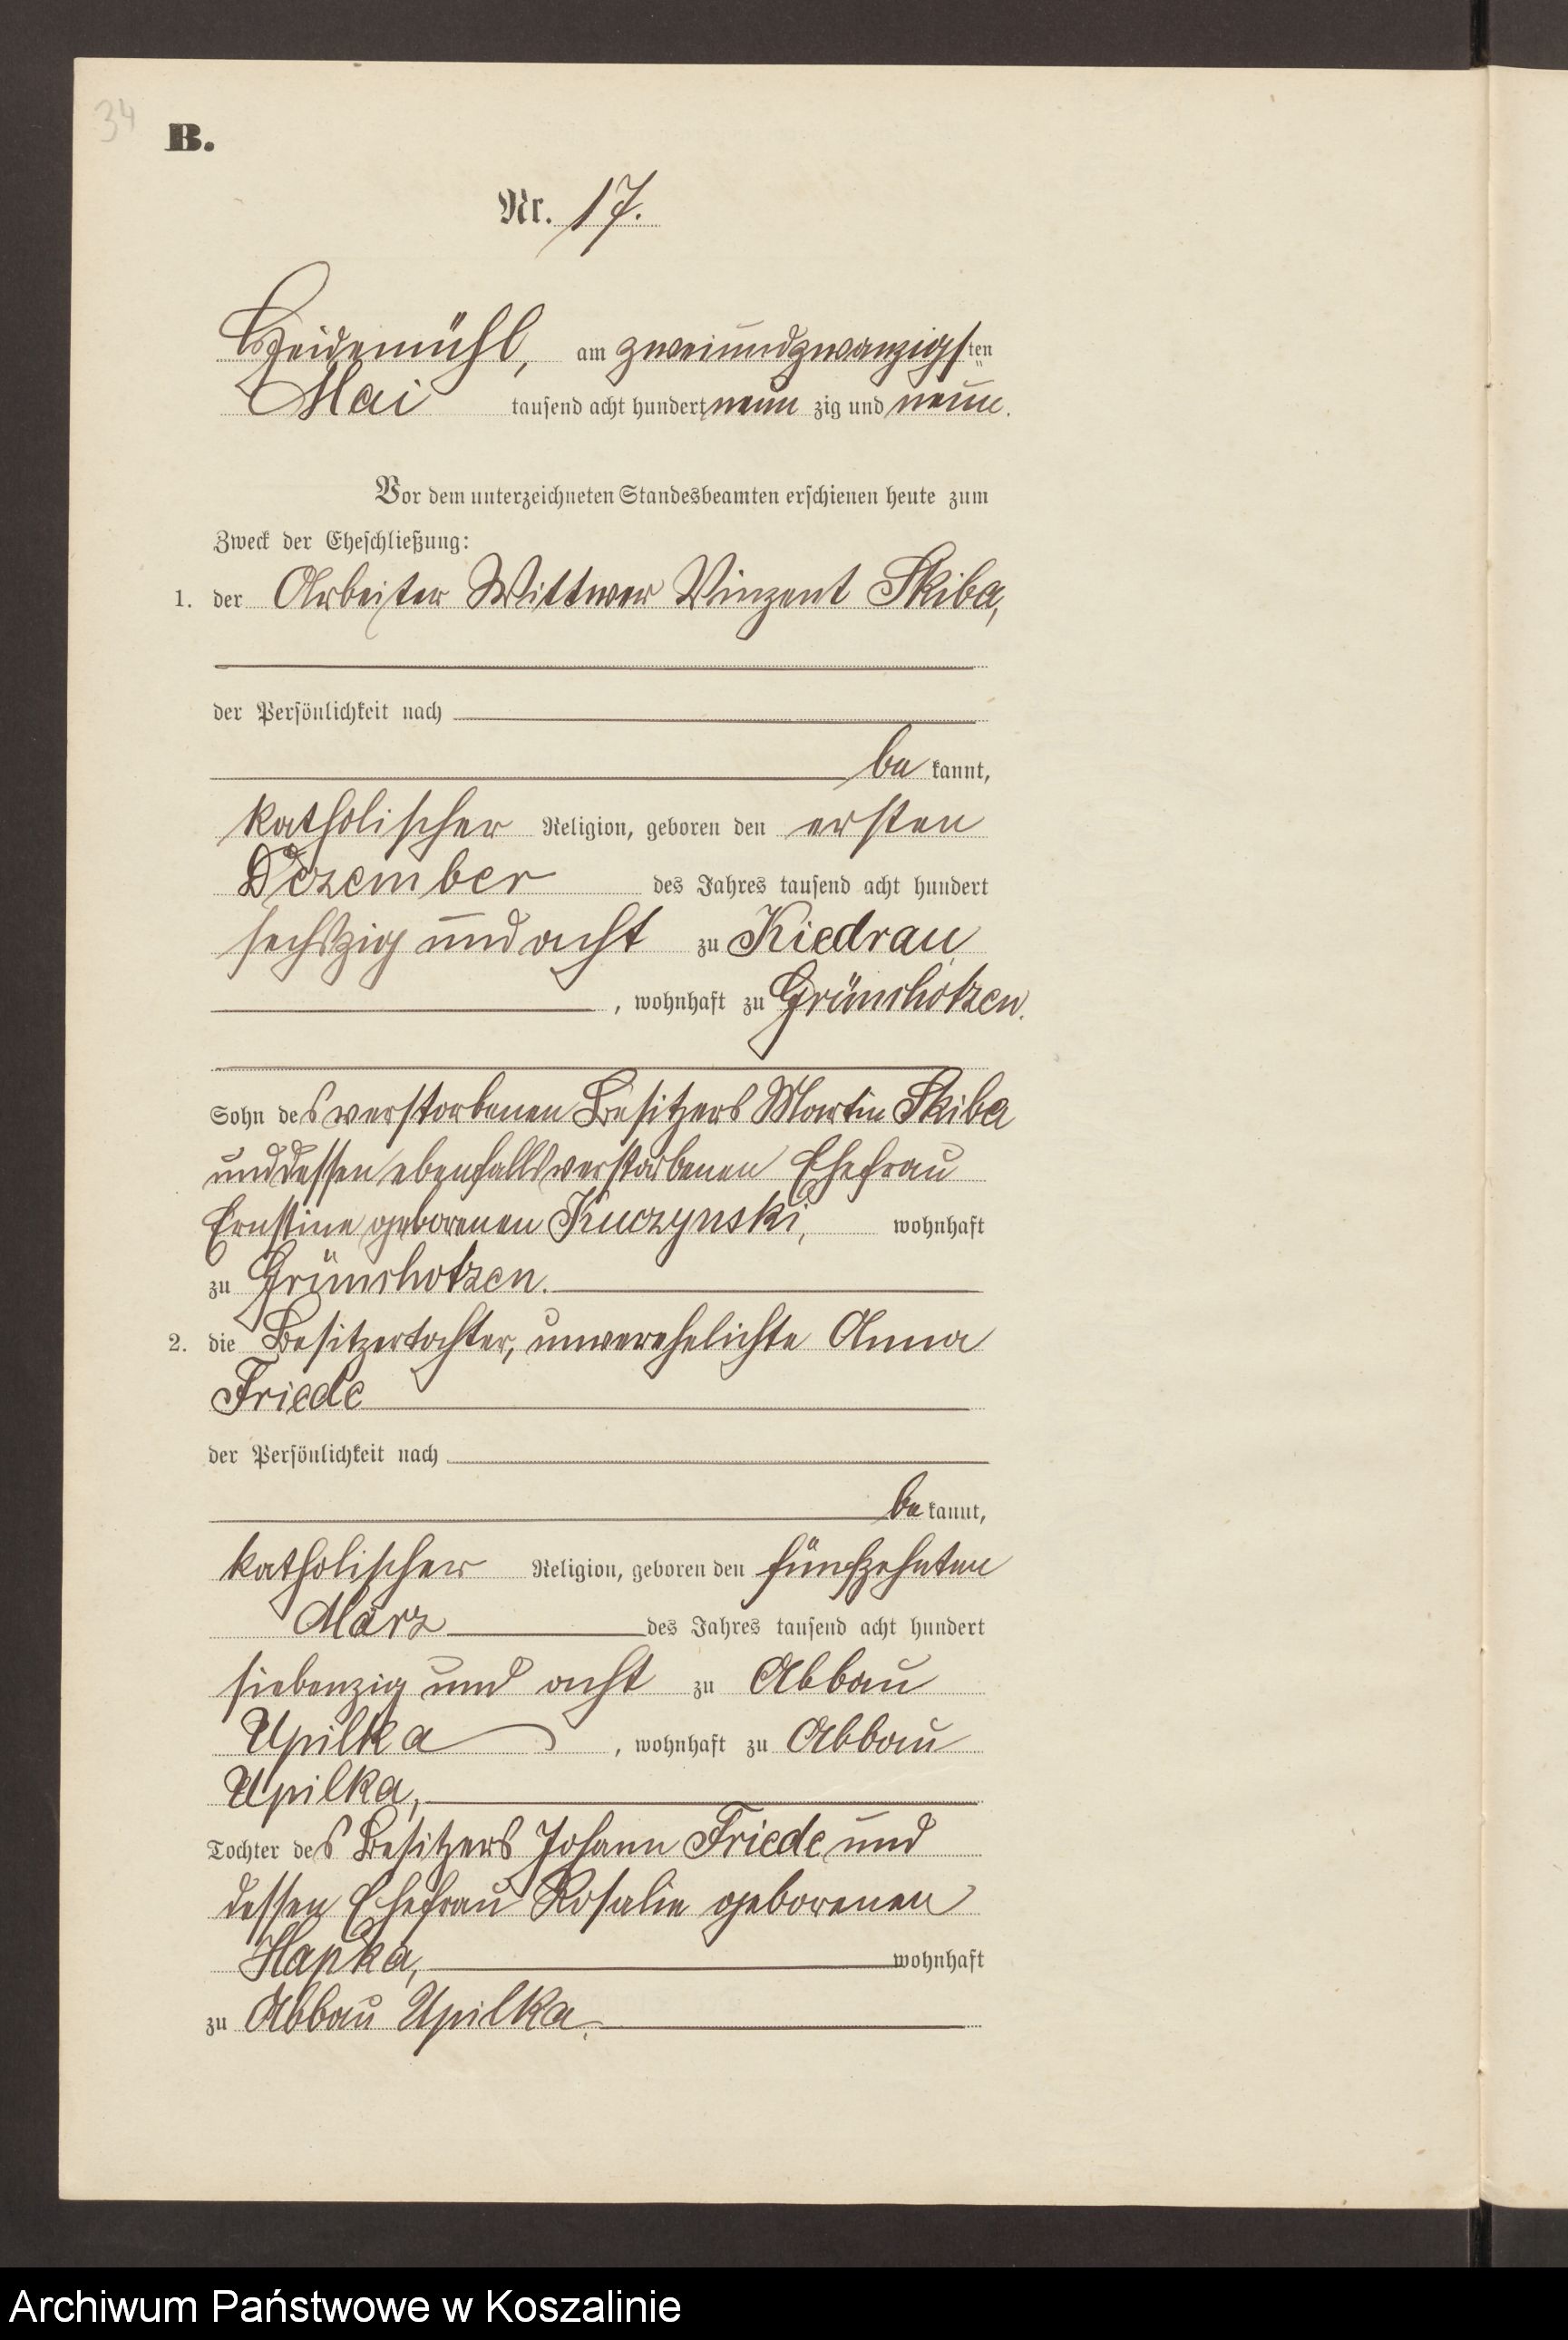 34
B.
Nr. 17.
Heidemühl, am zweiundzwanzigsten
Mai tausend acht hundert neun zig und neun.
Vor dem unterzeichneten Standesbeamten erschienen heute zum
Zweck der Eheschließung:
1. der Arbeiter Wittwer Vinzent Skiba,
der Persönlichkeit nach
be kannt,
katholischer Religion, geboren den ersten
Dezember des Jahres tausend acht hundert
sechszig und acht zu Kiedrau
, wohnhaft zu Grünchotzen.
Sohn des verstorbenen Besitzers Martin Skiba
und dessen ebenfalls verstorbenen Ehefrau
Ernstine geborenen Kuczynski, wohnhaft
zu Grünchotzen.
2. die Besitzertochter, unverehelichte Anna
Friede
der Persönlichkeit nach
be kannt,
katholischer Religion, geboren den fünfzehnten
März des Jahres tausend acht hundert
siebenzig und acht zu Abbau
Upilka, wohnhaft zu Abbau
Upilka,
Tochter des Besitzers Johann Friede und
dessen Ehefrau Rosalie geborenen
Hapka, wohnhaft
zu Abbau Upilka.
Archiwum Państwowe w Koszalinie